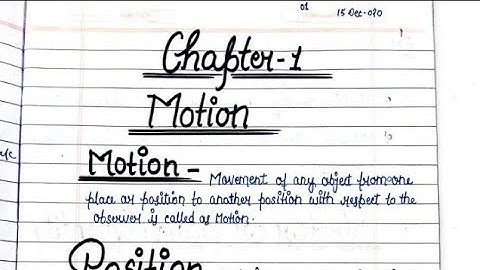 01
15 Dec. 020
Chapter-1
Motion
Motion - Movement of any object from one
place or position to another position with respect to the
observer is called as Motion.
Position